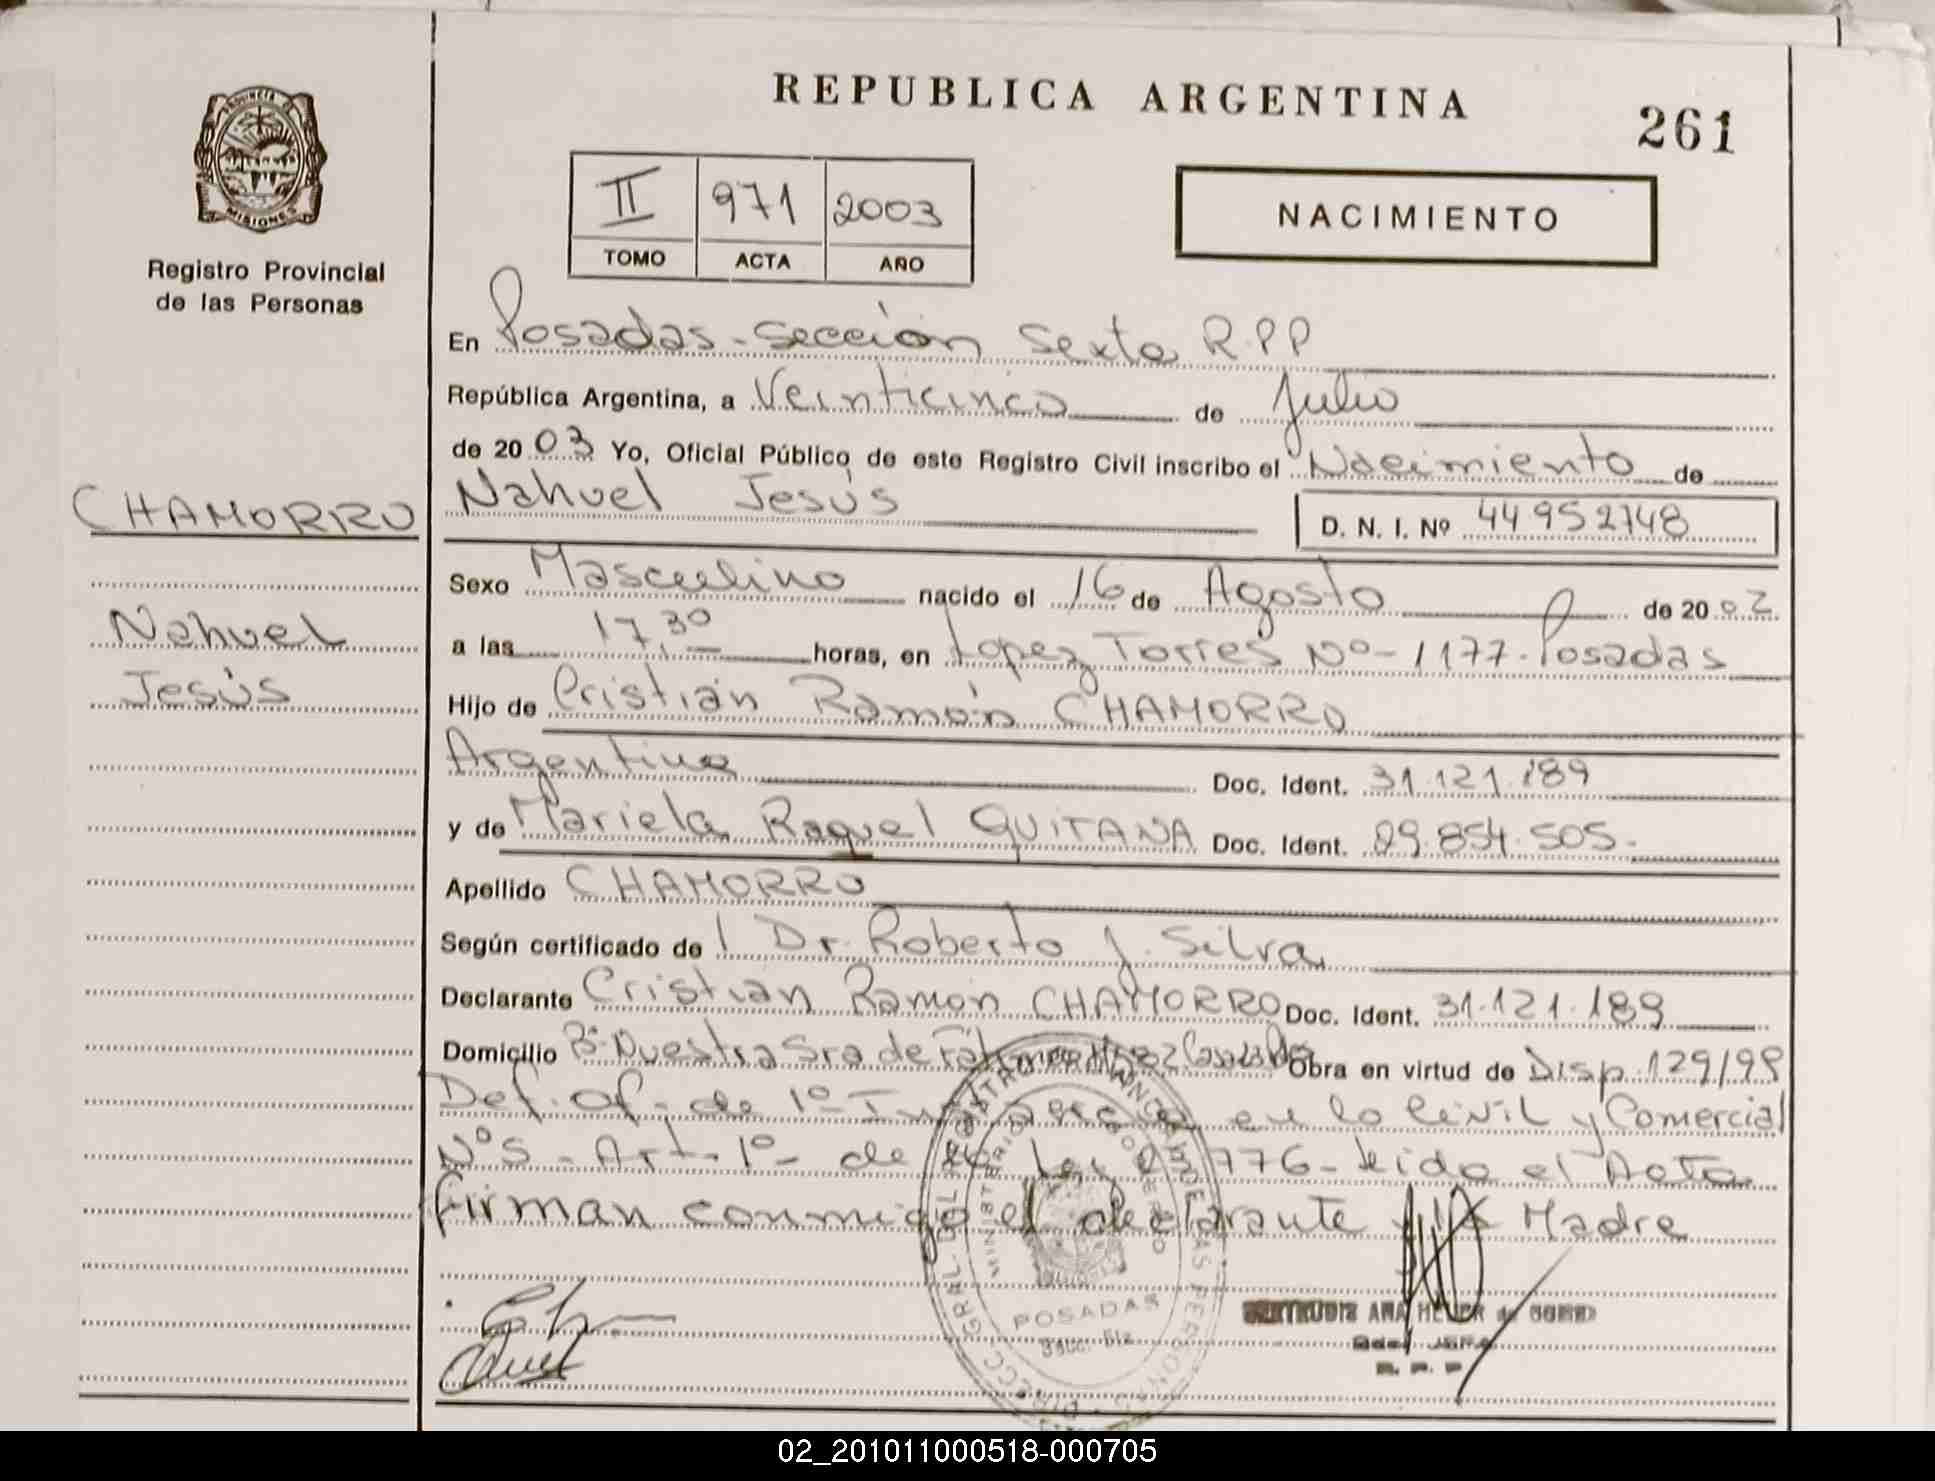 REPUBLICA ARGENTINA
261
PROVINCIA DE
MISIONES
Registro Provincial
de las Personas
II 971 2003
TOMO ACTA AÑO
NACIMIENTO
En Posadas - Sección Sexta R.P.P
República Argentina, a Veinticinco de Julio
de 2003 Yo, Oficial Público de este Registro Civil inscribo el Nacimiento de
CHAMORRO
Nahuel Jesús D. N. I. Nº 44952748
Nahuel
Jesús
Sexo Masculino nacido el 16 de Agosto de 2002
a las 17,30 horas, en Lopez Torres Nº - 1177 - Posadas
Hijo de Cristián Ramón CHAMORRO
Argentina Doc. Ident. 31.121.189
y de Mariela Raquel QUITANA Doc. Ident. 29.854.505.
Apellido CHAMORRO
Según certificado de l Dr. Roberto J. Silva
Declarante Cristian Ramón CHAMORRO Doc. Ident. 31.121.189
Domicilio Bº Nuestra Sra de Obra en virtud de Disp. 129/98
Def. Of. de 1º en lo Civil y Comercial
Nº 5 - Art. 1º - de Ley - leido el Acta
firman conmigo el declarante y la Madre
POSADAS
02_201011000518-000705